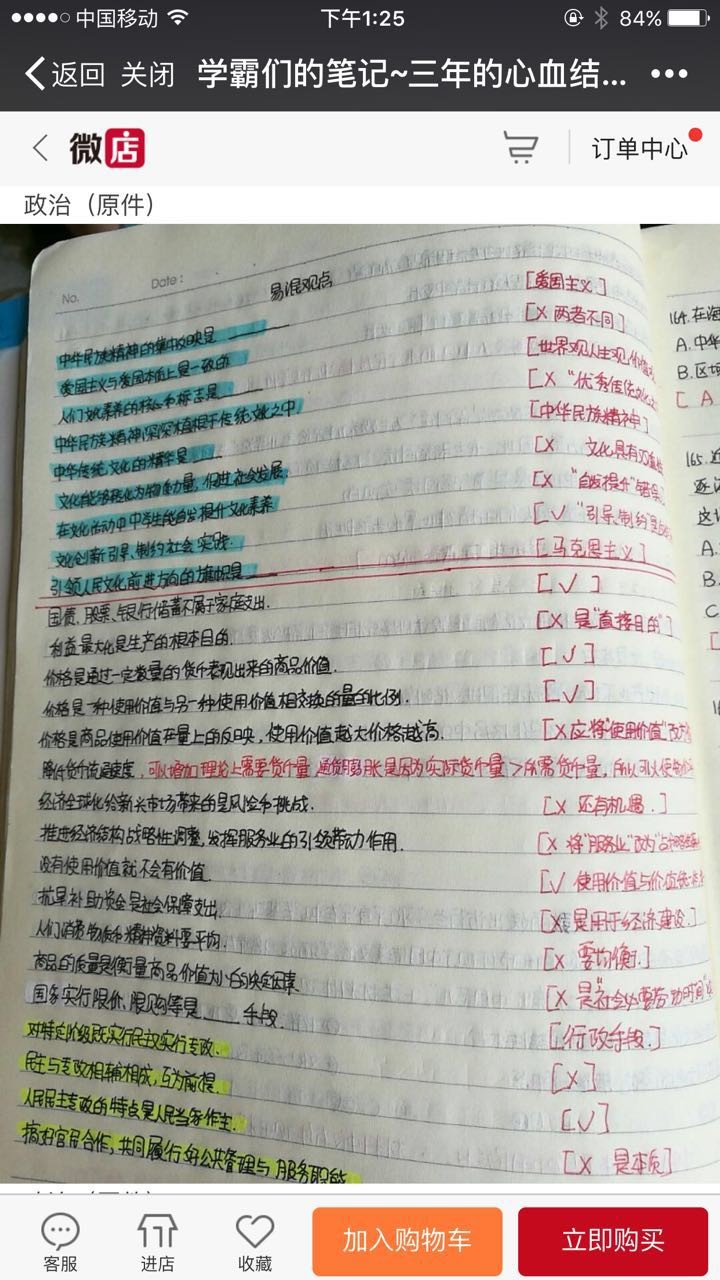 中国移动 下午1:25 84%
返回 关闭 学霸们的笔记~三年的心血结...
微店 订单中心
政治（原件）
No. Date:
易混观点
中华民族精神的集中反映是 [爱国主义]
爱国主义与爱国本质上是一致的 [X 两者不同]
人们文化素养的核心和标志是 [世界观人生观,价值
中华民族精神深深植根于传统文化之中. [X "优秀传统文化之
中华传统文化的精华是 [中华民族精神]
文化能够转化为物质力量,促进社会发展. [X 文化具有双重性
在文化活动中中学生能自发提升文化素养 [X "自发提升"错误
文化创新引导、制约社会实践. [√ "引导、制约"
引领人民文化前进方向的旗帜是 [马克思主义]
国债、股票、银行储蓄不属于家庭支出. [√]
利益最大化是生产的根本目的. [X 是"直接目的"]
价格是通过一定数量的货币表现出来的商品价值. [√]
价格是一种使用价值与另一种使用价值相交换的量的比例. [√]
价格是商品使用价值在量上的反映,使用价值越大价格越高. [X应将"使用价值"改为
降低货币流通速度,可以增加理论上需要货币量 通货膨胀是因为实际货币量>所需货币量,所以可以使
经济全球化给新兴市场带来的是风险和挑战. [X 还有机遇.]
推进经济结构战略性调整,发挥服务业的引领带动作用. [X 将"服务业"改为"战略
没有使用价值就不会有价值. [√ 使用价值与价值统一
抗旱补助资金是社会保障支出. [X是用于经济建设.]
人们消费物质和精神资料要平均. [X 要均衡.]
商品的质量是衡量商品价值大小的决定因素. [X 是"社会必要劳动时间"
国家实行限价、限购等是 手段. [行政手段.]
对特定阶级既实行民主又实行专政. [X]
民主与专政相辅相成,互为前提. [√]
人民民主专政的特点是人民当家作主. [X 是本质]
搞好官民合作,共同履行好公共管理与服务职能
164.在海
A.中华
B.区域
[A
165.近
这
A.
B.
C
客服 进店 收藏 加入购物车 立即购买